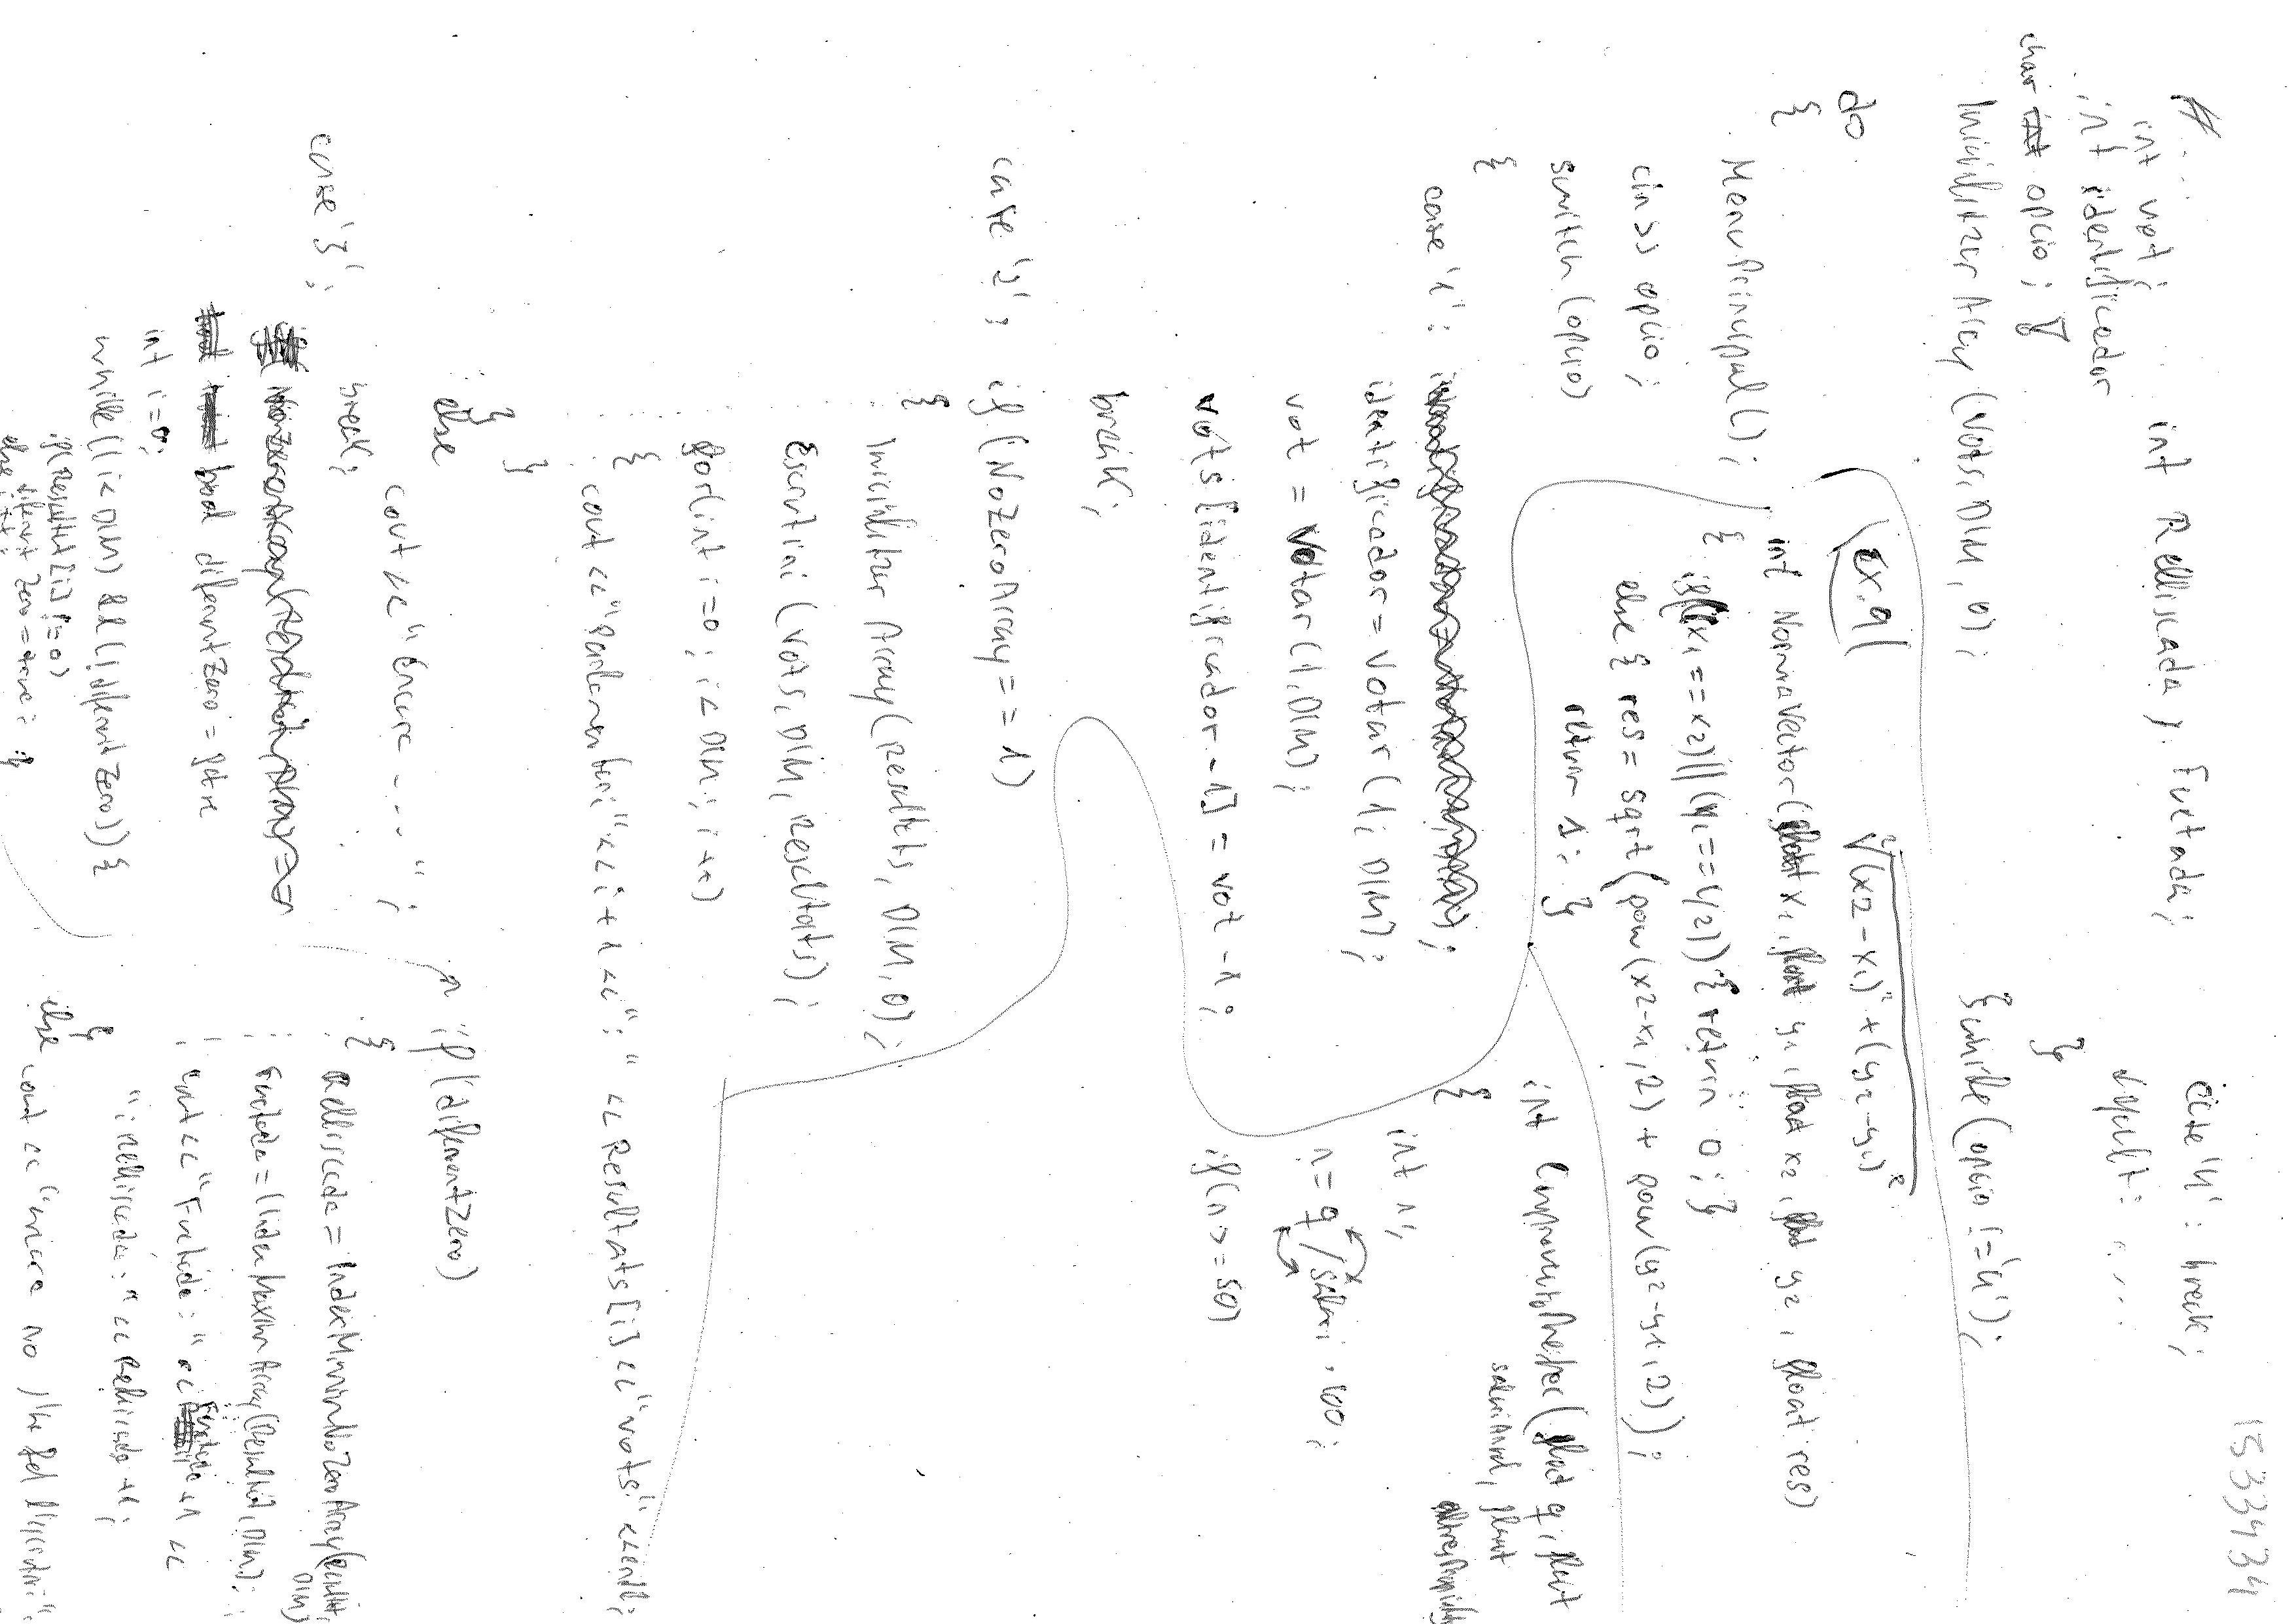 1533434
int vot;
int identificador
char opcio;
int Relliscada, Fuetada;
InicialitzarArray (Vots, DIM, 0);
do
{
MenuPrincipal();
cin >> opcio;
switch (opcio)
{
case '1':
identificador = Votar (1, DIM);
vot = Votar (1, DIM);
vots [identificador -1] = vot -1;
break;
case '2': if (NoZeroArray == 1)
{
InicialitzarArray (Resultats, DIM, 0);
Escrutini (Vots, DIM, Resultats);
for (int i=0; i < DIM; i++)
{
cout << "Parlamentari" << i+1 << ": " << Resultats[i] << "vots" << endl;
}
}
else
cout << "Encara ....";
break;
case '3':
bool diferentZero = false
int i=0;
while ((i < DIM) && (!diferentZero)) {
if (Resultat[i] != 0)
diferentZero = true; }
else i++;
if (diferentZero)
{
Relliscada = IndexMinimNoZeroArray (Resultat, DIM)
Fuetada = IndexMaximArray (Resultat, DIM);
cout << "Fuetada: " << Fuetada +1 <<
"; relliscada: " << Relliscada +1;
}
else cout << "encara no
case '4': break;
default: ....
}
} while (opcio != '4');
ex. 9
√(x2-x1)² + (y2-y1)²
int NormaVector (float x1, float y1, float x2, float y2, float res)
{ if ((x1 == x2) || (y1 == y2)) { return 0; }
else { res = sqrt (pow (x2-x1, 2) + pow (y2-y1, 2));
return 1; }
int (float q, float
salariAnual, float
{
int n;
n = q / salari · 100;
if (n >= 50)